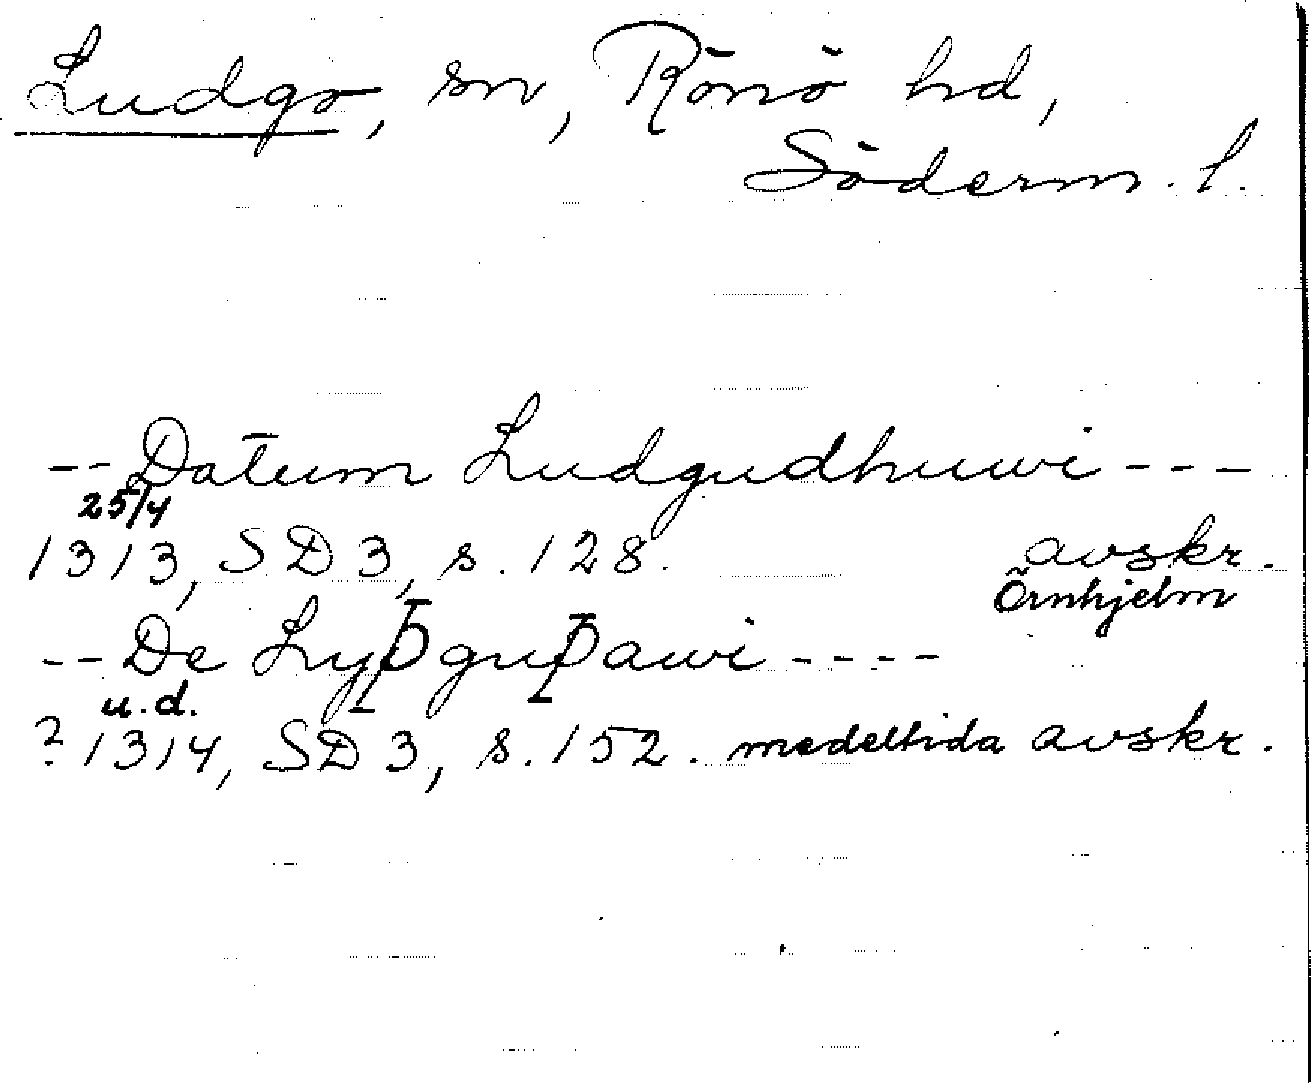 Ludgo, sn, Rönö hd,
Söderm. l.
-- Datum Ludgudhuwi ---
25/4
1313, SD 3, s. 128. avskr.
Örnhjelm
-- De Lyþguþawi ----
u. d.
? 1314, SD 3, s. 152. medeltida avskr.